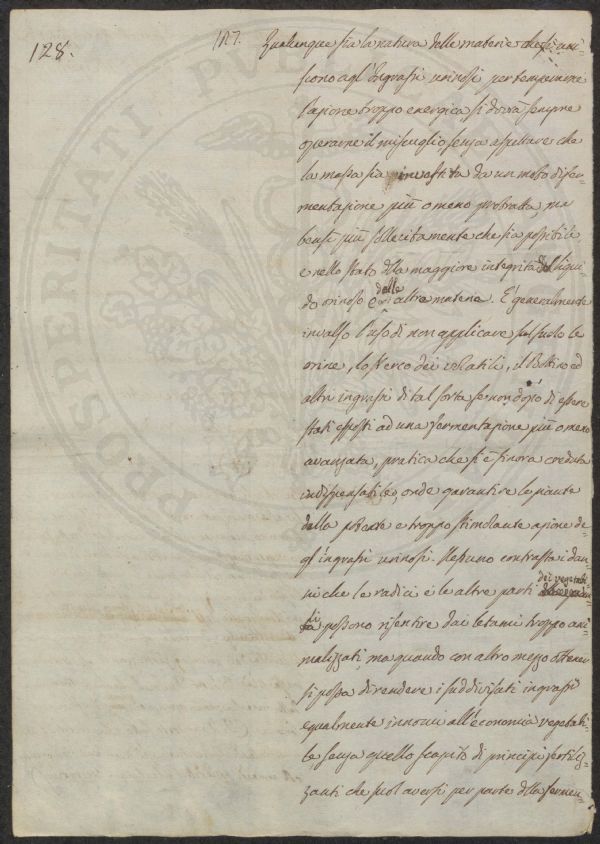 128.
127. Qualunque sia la natura delle materie che si uni-
scono agl'Ingrassi urinosi per temperarne
l'azione troppo energica si dovrà sempre
operarne il miscuglio senza aspettare che
la massa sia investita da un moto di fer-
mentazione più o meno protratta, ma
bensì più sollecitamente che sia possibile
e nello stato della maggiore integrità del liqui
do orinoso e delle altre materie. E' generalmente
invalso l'uso di non applicare sul suolo le
orine, lo sterco dei volatili, il Bottino ed
altri ingrassi di tal sorta se non dopo di essere
stati esposti ad una fermentazione più o meno
avanzata, pratica che si è finora creduta
indispensabile, onde garantire le piante
dalla potente e troppo stimolante azione de-
gl'ingrassi urinosi. Nessuno contrasta i dan-
ni che le radici e le altre parti dei vegetabi-
li possono risentire dai letami troppo ani-
malizzati, ma quando con altro mezzo ottener
si possa di rendere i suddivisati ingrassi
egualmente innocui all'economia vegetabi-
le senza quello scapito di principj fertiliz-
zanti che suol aversi per parte della fermen-
PROSPERITATI PUBLICAE